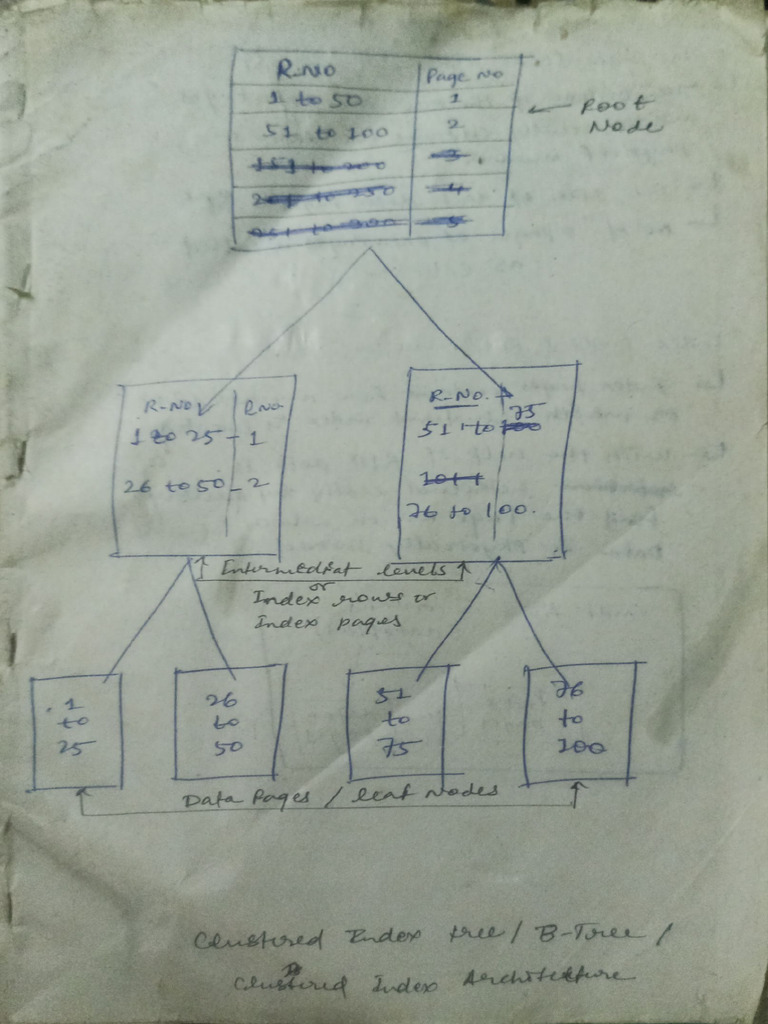 R-No Page No
1 to 50 1
51 to 100 2
151 to 200 3
201 to 250 4
251 to 300 5
← Root
Node
R-No P.No
1 to 25 - 1
26 to 50 - 2
R-No.
75
51 to 100
76 to 100.
Intermediat levels
or
Index rows or
Index pages
1
to
25
26
to
50
51
to
75
76
to
100
Data Pages / leaf Nodes
Clustured Index tree / B-Tree /
Clustured Index Architekture